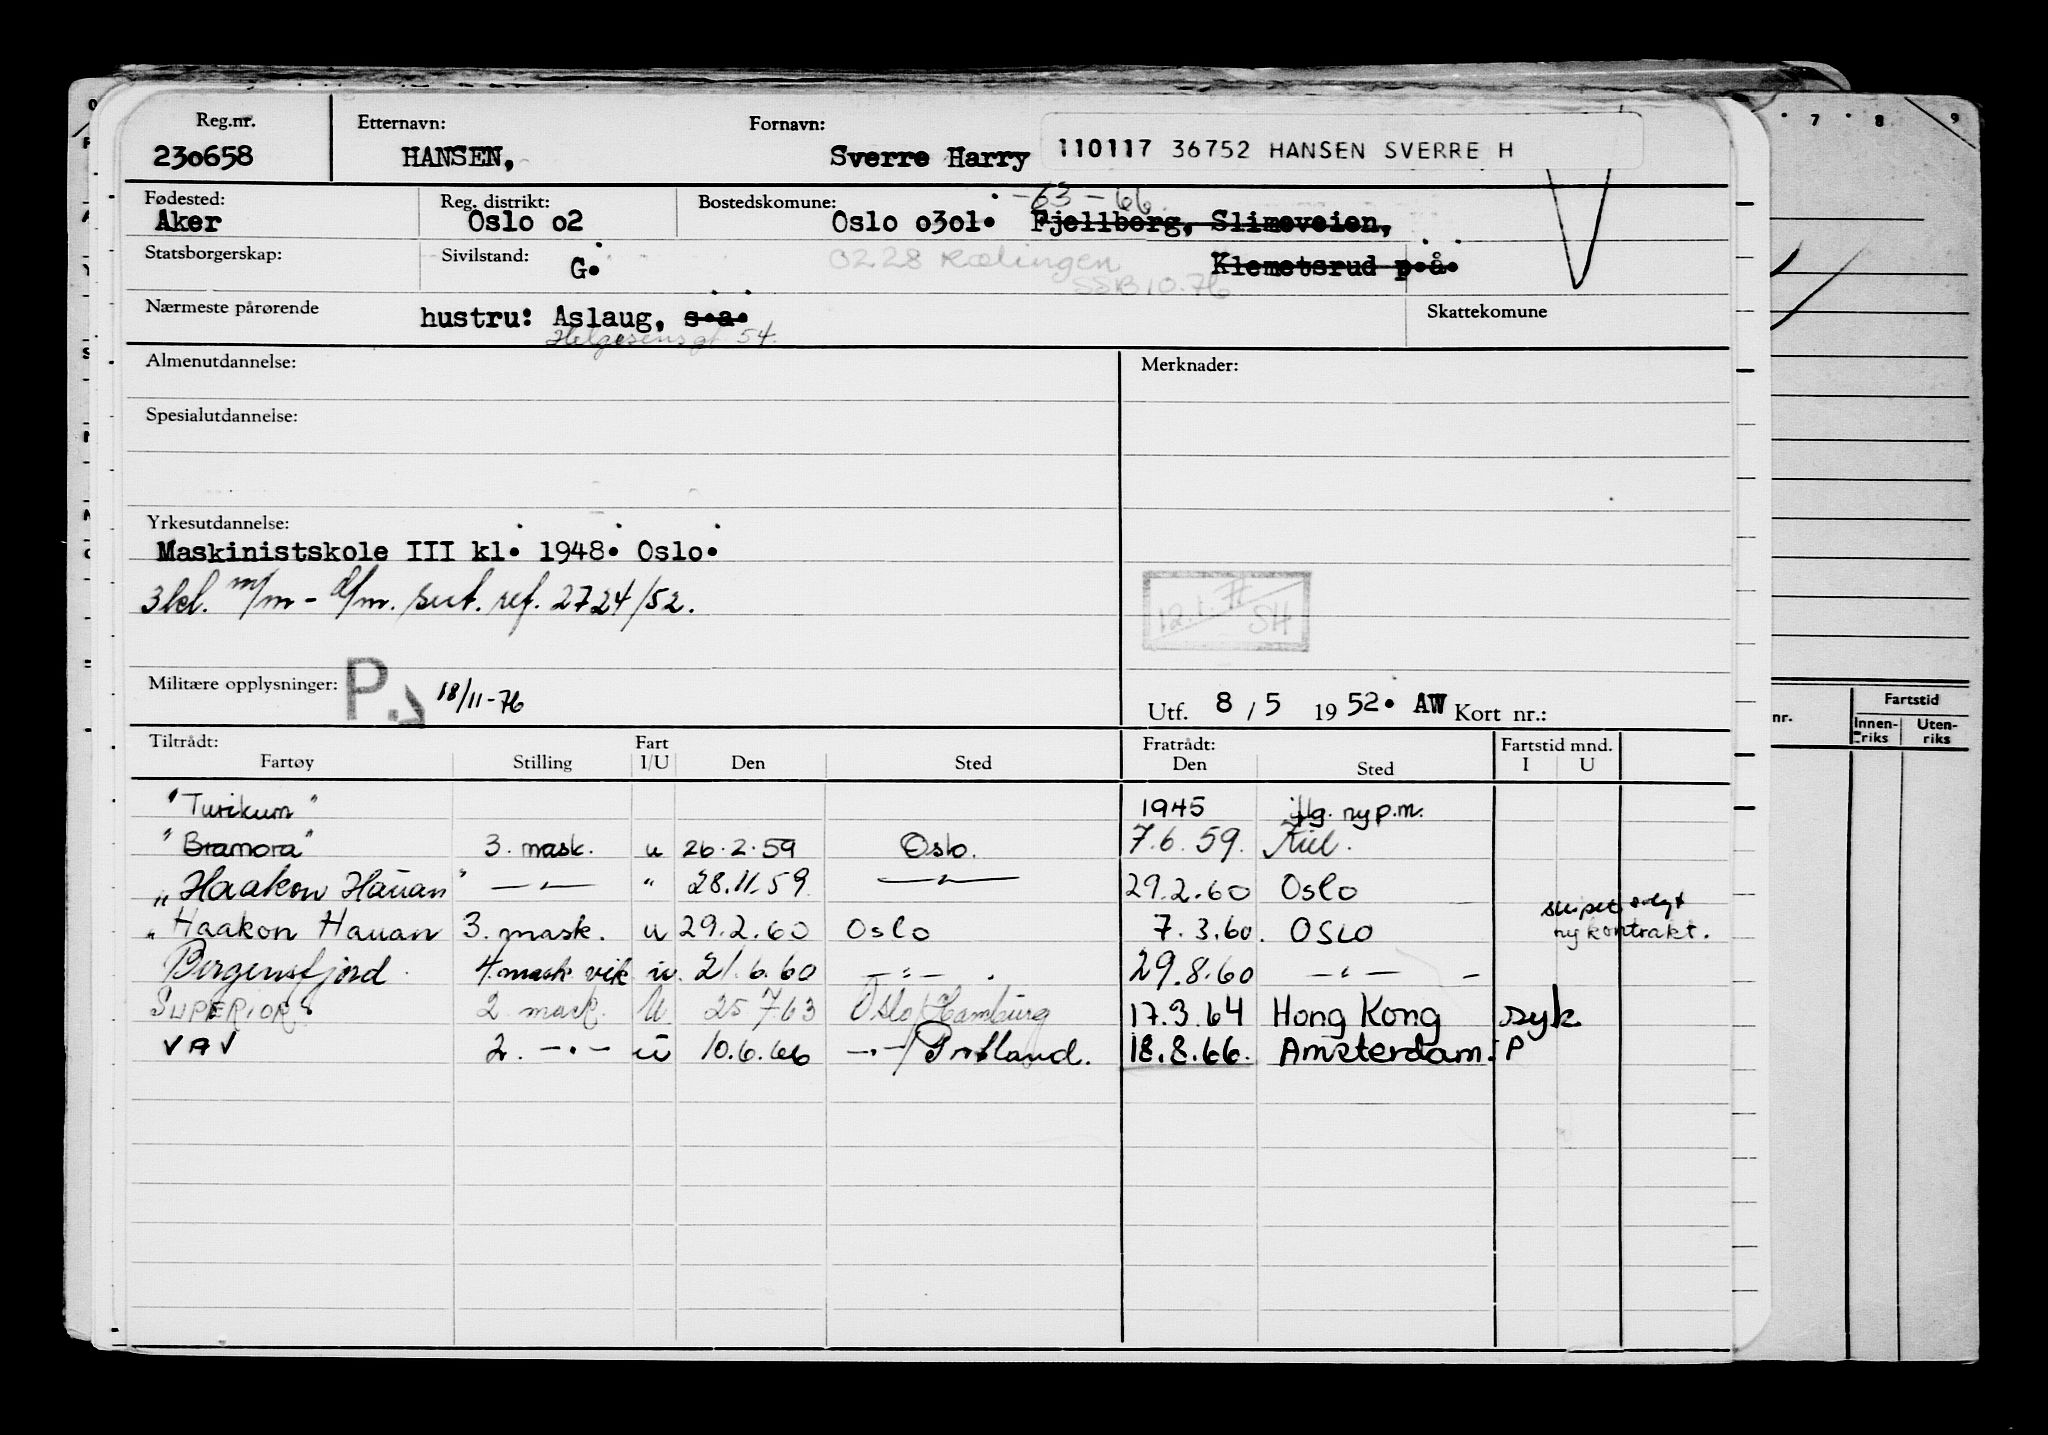 Reg.nr. Etternavn: Fornavn:
230658 HANSEN, Sverre Harry 110117 36752 HANSEN SVERRE H
-63-66.
Fødested: Reg. distrikt: Bostedskomune:
Aker Oslo o2 Oslo o3o1. Fjellborg, Slimeveien,
Statsborgerskap: Sivilstand: G. 0228 Rælingen Klemetsrud p.å.
SSB 10.76
Nærmeste pårørende hustru: Aslaug, s.a. Skattekomune
Helgesensgt 54.
Almenutdannelse: Merknader:
Spesialutdannelse:
Yrkesutdannelse:
Maskinistskole III kl. 1948. Oslo.
3 kl. m/m - d/m. sert. ref. 2724/52.
12.1.71 SH
Militære opplysninger: P. 18/11-76
Utf. 8 / 5 1952. AW Kort nr.:
Tiltrådt: Fart Fratrådt: Fartstid mnd.
Fartøy Stilling I/U Den Sted Den Sted I U
"Turikum" 1945 iflg. ny p.m.
"Bramora" 3. mask. u 26.2.59 Oslo. 7.6.59. Kiel.
"Haakon Hauan" —"— " 28.11.59 —"— 29.2.60 Oslo
"Haakon Hauan 3. mask. u 29.2.60 Oslo 7.3.60. OSLO skipet solgt
ny kontrakt.
Bergensfjord 4. mask vik u. 21.6.60 —"— 29.8.60 —"— –
SUPERIOR 2 mask. U 25 7.63 Oslo/Hamburg 17.3.64 Hong Kong syk
VAV 2. —"— u 10.6.66 —"—/Portland. 18.8.66. Amsterdam. P
7 8 9
nr. Fartstid
Innenriks Utenriks